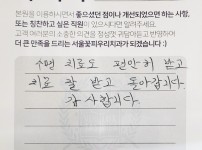 본원을 이용하시면서 좋으셨던 점이나 개선되었으면 하는 사항,
또는 칭찬하고 싶은 직원이 있으시다면 알려주세요.
고객 여러분의 소중한 의견을 정성껏 귀담아듣고 반영하며
더 큰 만족을 드리는 서울꽃피우리치과가 되겠습니다 :)
수면 치료도 편안히 받고
치료 잘 받고 돌아갑니다.
감사합니다.